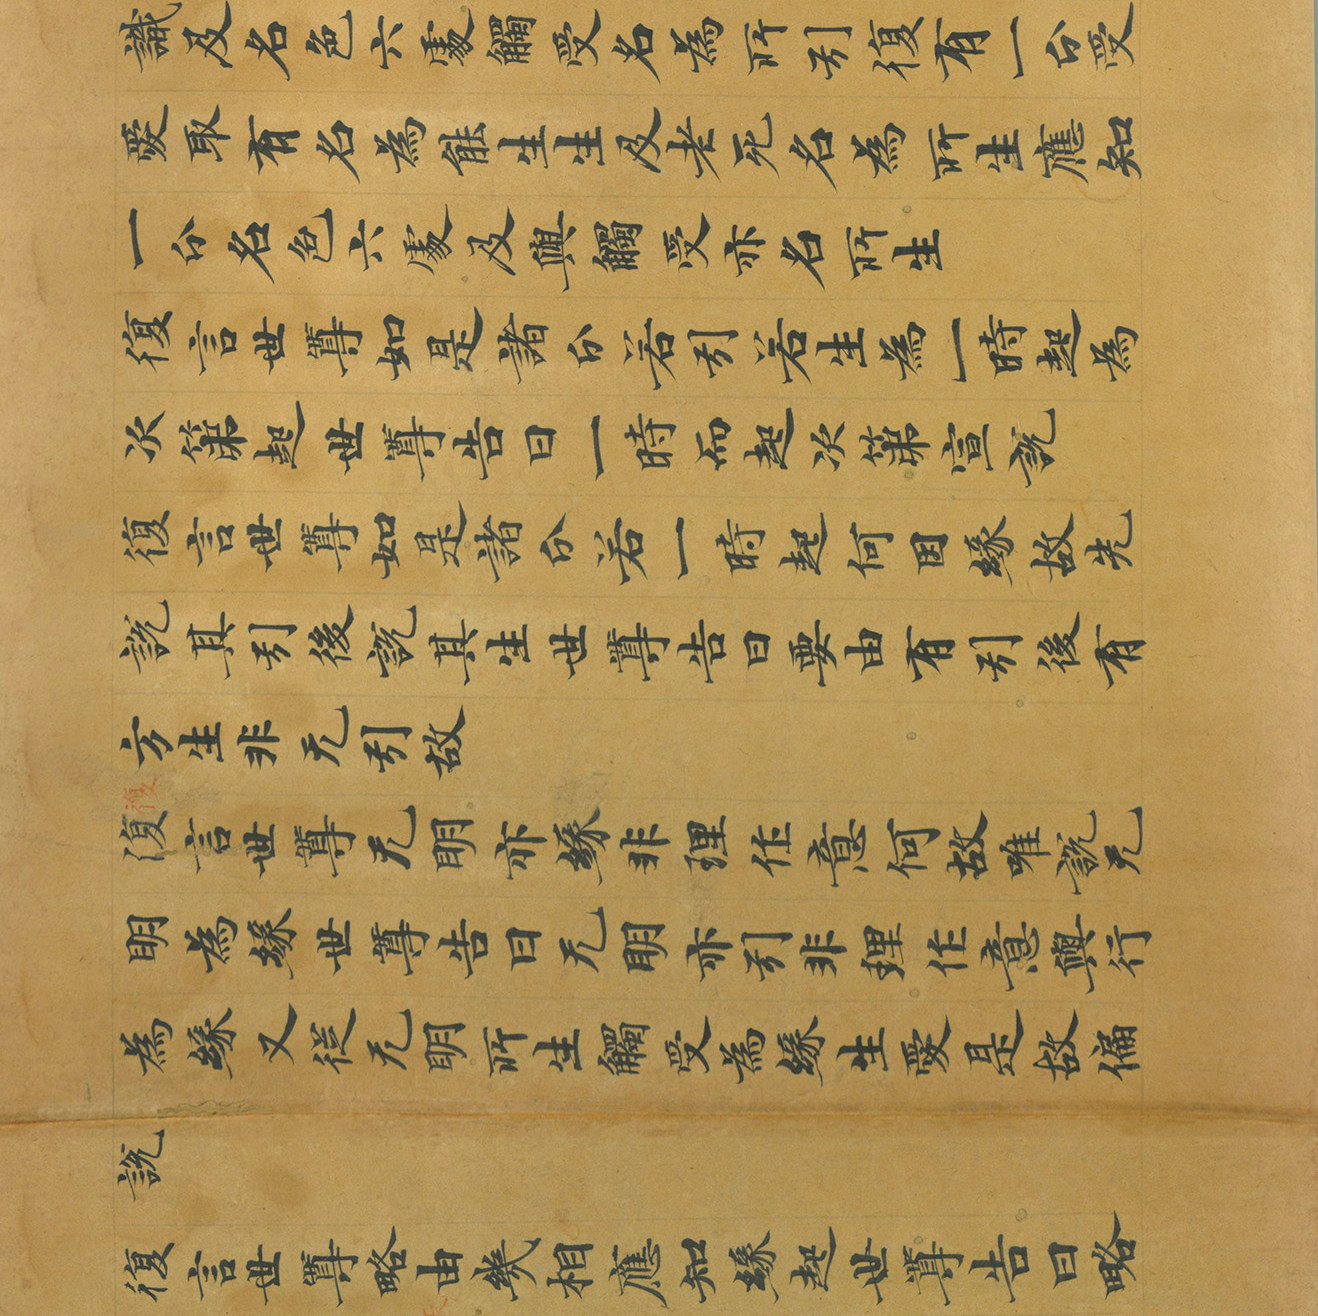 識及名色六處觸受名為所引復有一分受
愛取有名為能生生及老死名為所生應知
一分名色六處及與觸受亦名所生
復言世尊如是諸分若引若生為一時起為
次第起世尊告曰一時而起次第宣說
復言世尊如是諸分若一時起何因緣故先
說其引後說其生世尊告曰要由有引後有
方生非无引故
復
復言世尊无明亦緣非理作意何故唯說无
明為緣世尊告曰无明亦引非理作意與行
為緣又從无明所生觸受為緣生愛是故偏
說
復言世尊略由幾相應知緣起世尊告曰略